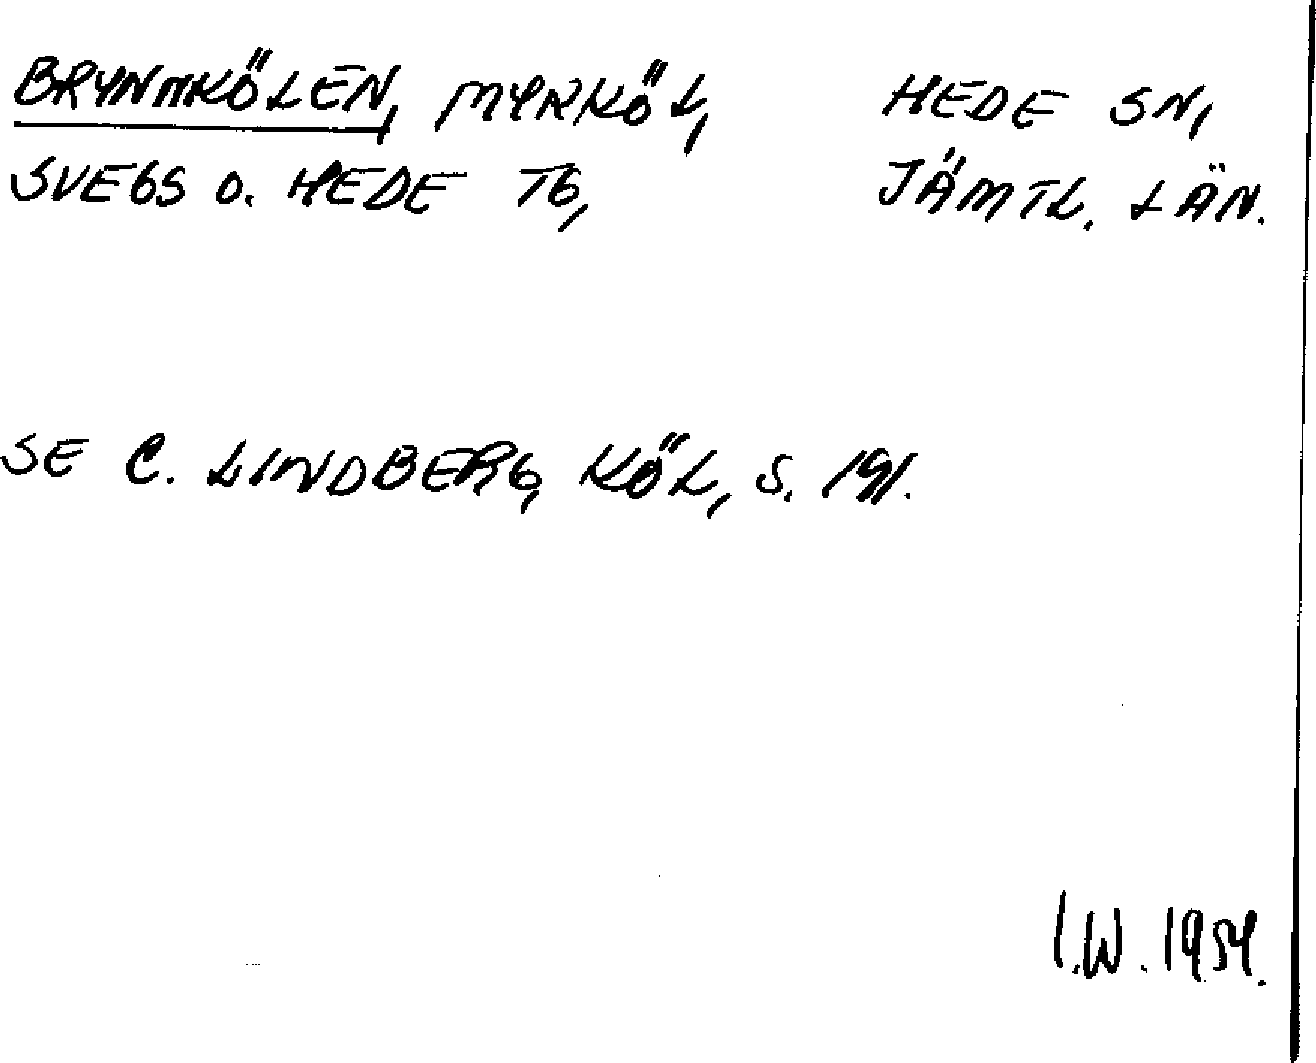 BRYNAKÖLEN, MYRKÖL, HEDE SN,
SVEGS O. HEDE TG, JÄMTL. LÄN.
SE C. LINDBERG, KÖL, S. 191.
I.W. 1954.